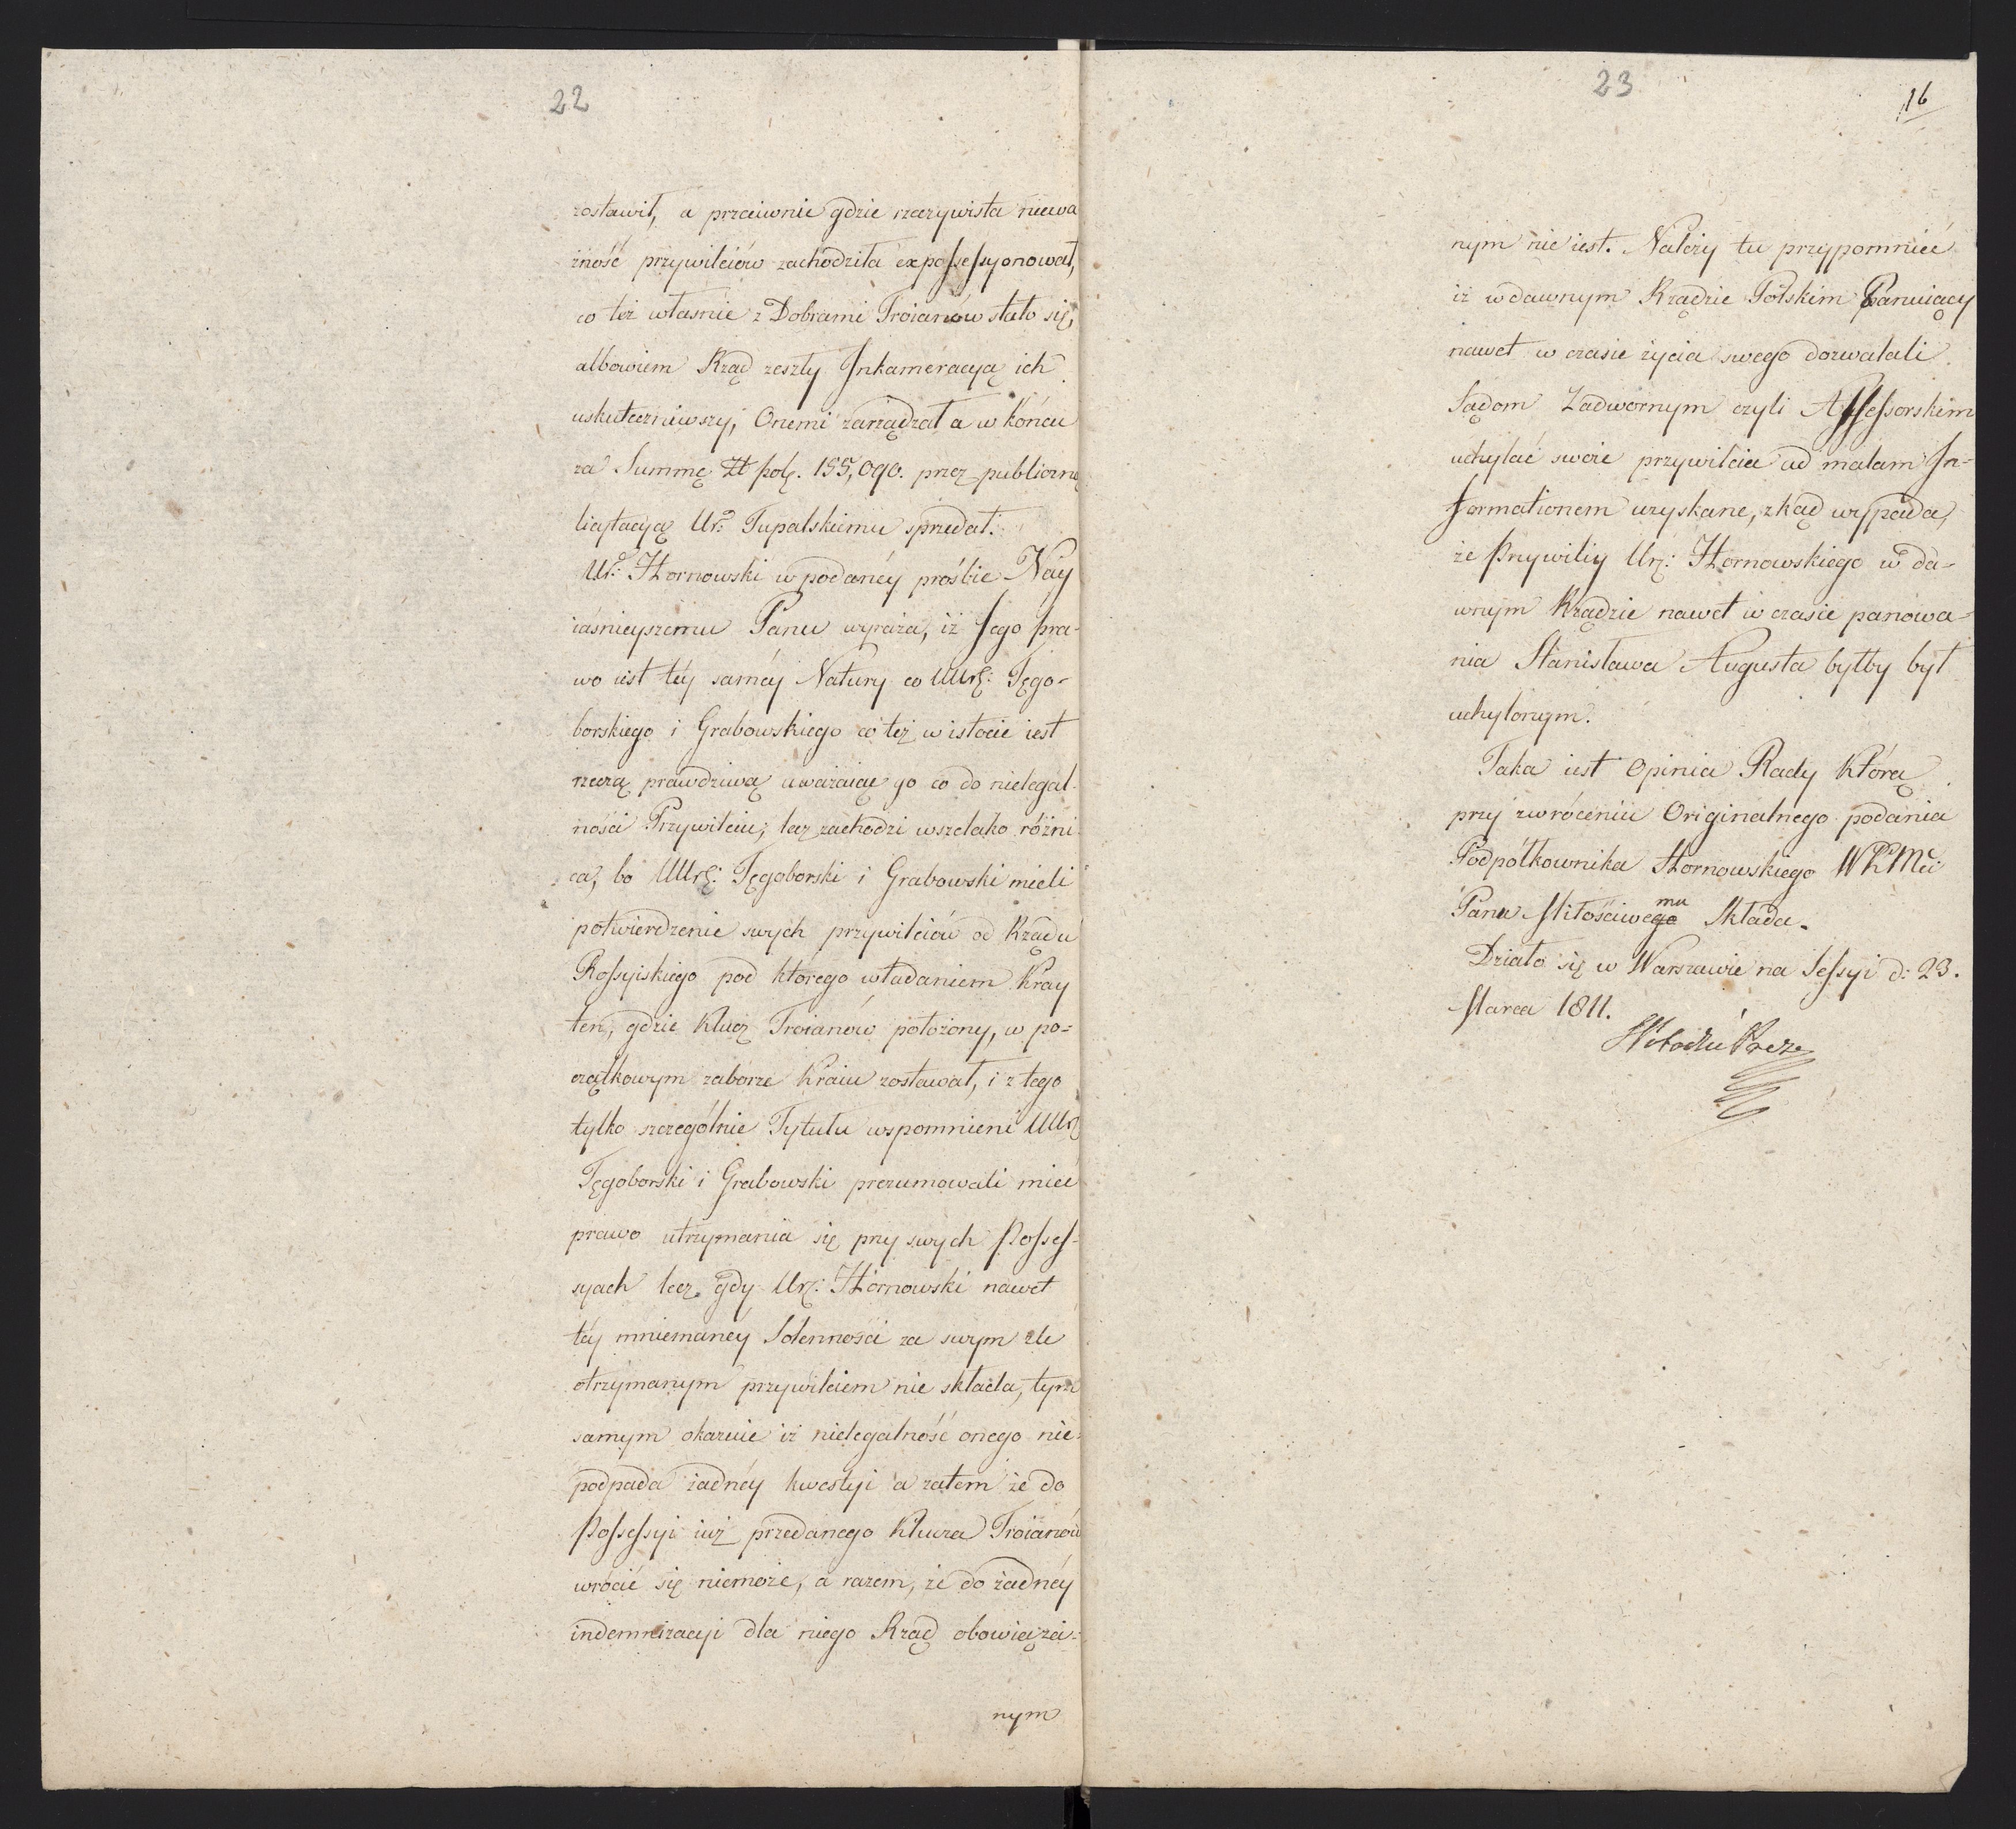 22
zostawił, a przeciwnie gdzie rzeczywista niewa
żność przywileiów zachodziła expossessyonował,
co też własnie z Dobrami Troianów stało się,
albowiem Rząd zeszły Inkameracyą ich
uskuteczniwszy, Onemi zarządzał a w końcu
za Summę Zł pol. 155,090. przez publiczną
licytacyą Ur: Tupalskiemu sprzedał.
Ur: Hornowski w podanéy prośbie Nay
iaśnieyszemu Panu wyraża, iż Jego pra-
wo iest téy saméy Natury co UUr: Tęgo-
borskiego i Grabowskiego co też w istocie iest
rzeczą prawdziwą uważaiąc go co do nielegal-
ności Przywileiu; lecz zachodzi wszelako różni
ca, bo UUr: Tęgoborski i Grabowski mieli
potwierdzenie swych przywileiów od Rządu
Rossyiskiego pod którego władaniem Kray
ten, gdzie Klucz Troianów położony, w po-
czątkowym zaborze Kraiu zostawał, i z tego
tylko szczególnie Tytułu wspomnieni UUr
Tęgoborski i Grabowski prezumowali mieć
prawo utrzymania się przy swych Posses-
syach lecz gdy Ur: Hornowski nawet
téy mniemanéy Solenności za swym źle
otrzymanym przywileiem nie składa, tym
samym okazuie iż nielegalność onego nie
podpada żadnéy kwestyi a zatem że do
Possessyi iuż przedanego Klucza Troianów
wrócić się niemoże, a razem, że do żadnéy
indemnizacyi dla niego Rząd obowiąza-
nym
23
16
nym nie iest. Należy tu przypomnieć
iż w dawnym Rządzie Polskim Panuiący
nawet w czasie życia swego dozwalali
Sądom Zadwornym czyli Assessorskim
uchylać swoie przywileie ad malam In-
formationem uzyskane, zkąd wypada,
że Przywiliy Ur: Hornowskiego w da-
wnym Rządzie nawet w czasie panowa-
nia Stanisława Augusta byłby był
uchylonym.
Taka iest Opinia Rady którą
przy zwróceniu Originalnego podania
Podpółkownika Hornowskiego WKMci
Panu Miłościwego mu Składa.
Działo się w Warszawie na Sessyi d: 23.
Marca 1811.